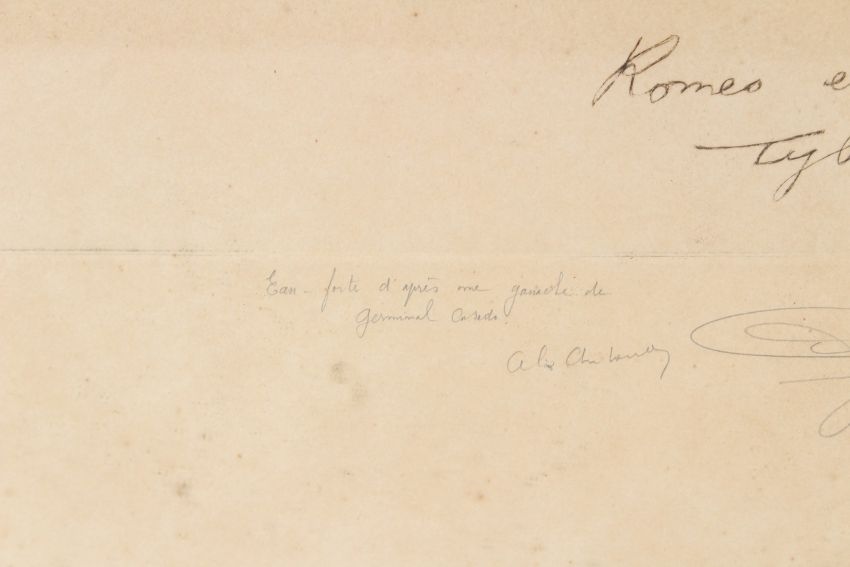 Romeo e
Tyb
Eau-forte d'après une gouache de
Germinal Casado.
Alix